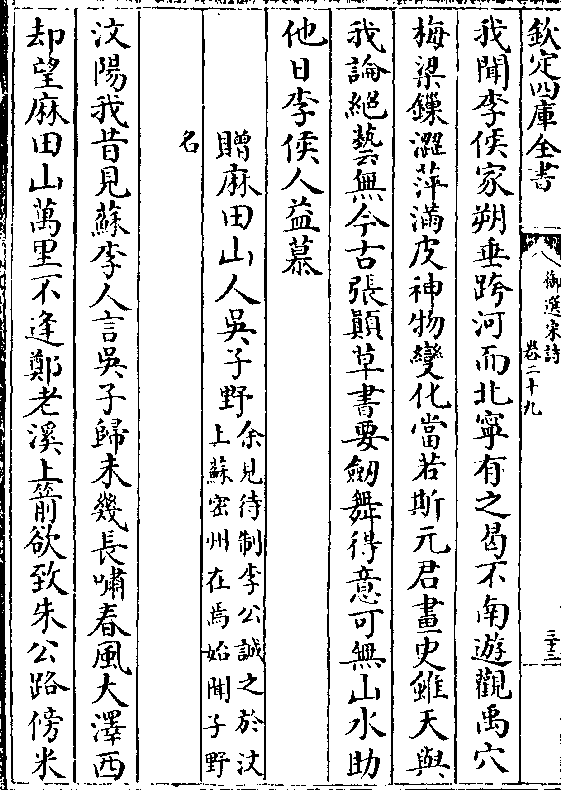 欽定四庫全書
御選宋詩
卷二十九
三十三
我聞李侯家朔垂跨河而北寧有之曷不南遊觀禹穴
梅梁鏁澀萍滿皮神物變化當若斯元君畫史雖天與
我論絕藝無今古張顛草書要劒舞得意可無山水助
他日李侯人益慕
贈麻田山人吳子野余見待制李公誠之於汶
上蘇密州在焉始聞子野
名
汶陽我昔見蘇李人言吳子歸未幾長嘯春風大澤西
却望麻田山萬里不逢鄭老溪上箭欲致朱公路傍米